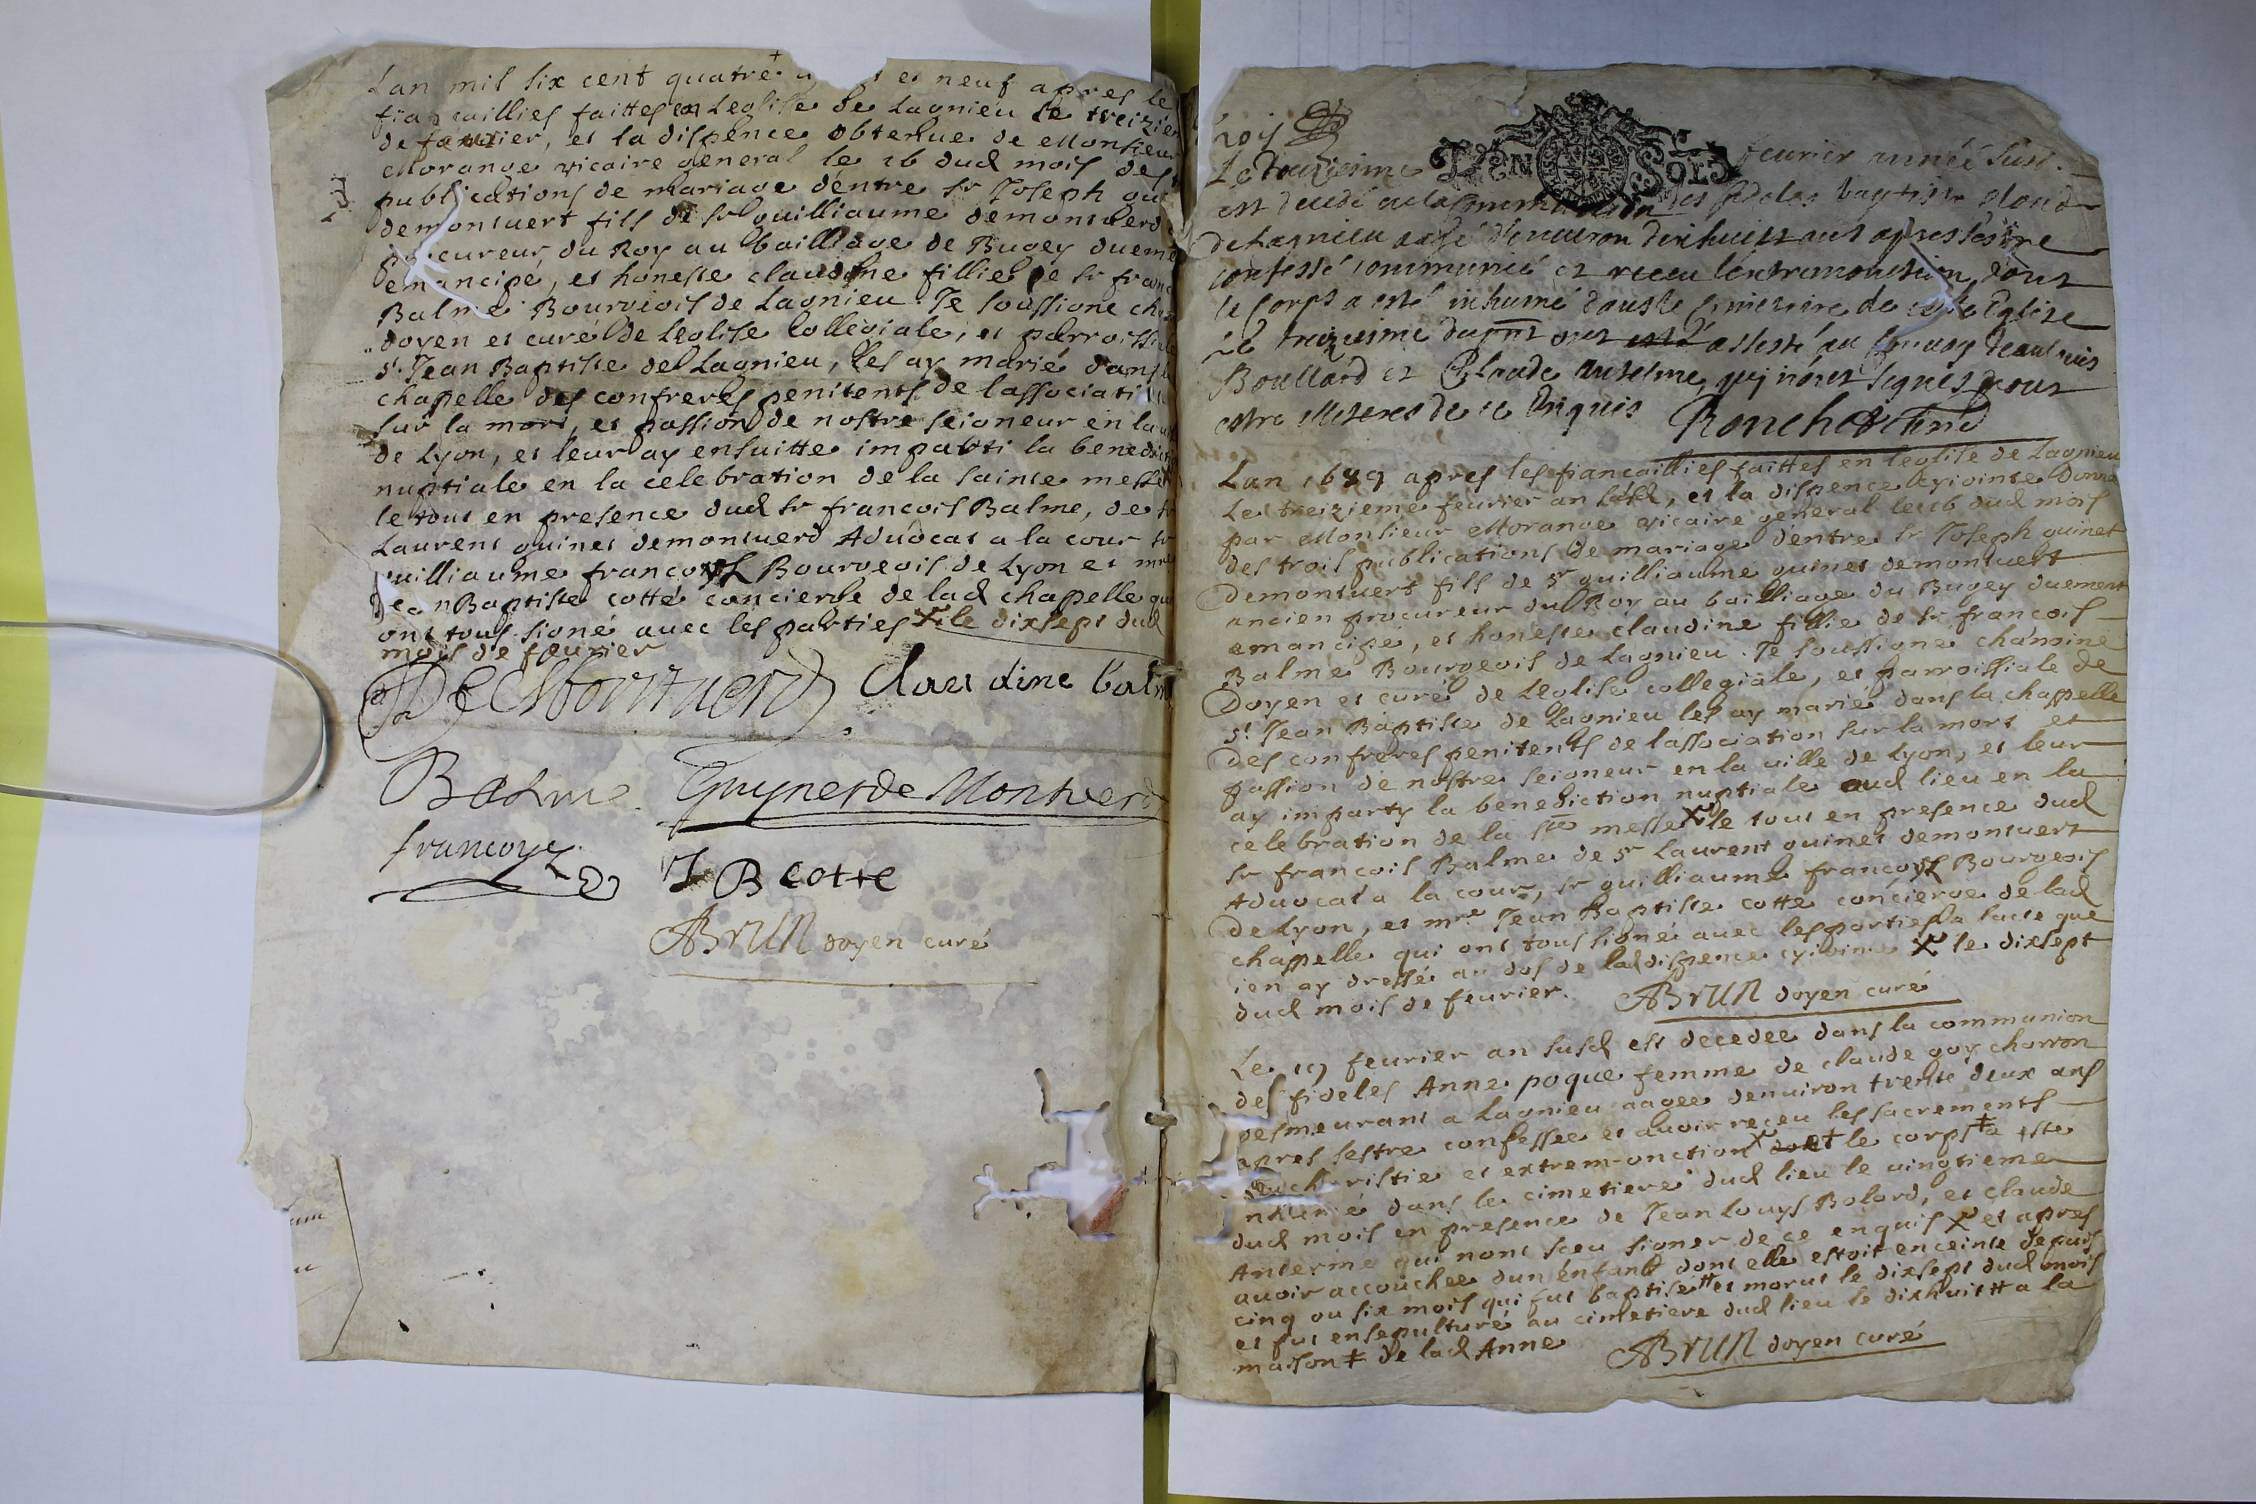 Lan mil six cent quatre et neuf apres le
fiancaillies faittes en Leglise de Lagnieu le treizien
de feurier, et la dispence obtenue de Monsieur
Morange vicaire general le 16 dud mois des
publications de mariage dentre sr Joseph gui
demontuert fils de sr guilliaume demontuerd
procureur du Roy au bailliage de Bugey duem
emancipe, et honeste claudine fillie de sr franc
Balme Bourgeois de Lagnieu. Je soussigne cha
doyen et curé de Leglise Collegiale, et parroissi
st Jean Baptiste de Lagnieu, les ay marié dans
chapelle des confreres penitents de lassociati
sur la mort, et passion de nostre seigneur en la
de Lyon, et leur ay ensuitte imparti la benedict
nuptiale en la celebration de la sainte messe
le tout en presence dud sr francois Balme, de sr
Laurent guinet demontuerd Aduocat a la cour sr
guilliaume francoys Bourgeois de Lyon et mre
Jean Baptiste cotte concierge de lad chapelle qui
ont tous signé auec les parties X le dixsept dud
mois de feurier
De Montuerd Claudine balm
Balme Guynet de Montverd
francoys
J B cotte
ABrun doyen curé
DEN SOLS
Le feurier année susd.
est decedé en la communion des fideles baptiste
de Lagnieu aagé denuiron dixhuict ans apres sestre
confessé communié et receu lextremonction, dont
le corps a esté inhumé dans le cimetiere de ceste Eglise
le treizieme ont assisté au conuoy Jean Louis
Boullard et Claude Anselme qui nont signés pour
estre de ce Enquis
Lan 1689 apres les fiancaillies faittes en leglise de Lagnieu
Le treizieme feurier an susd, et la dispence cyjointe Donné
par Monsieur Morange vicaire general le 16 dud mois
des trois publications de mariage dentre sr Joseph guinet
demontuert fils de sr guilliaume guinet demontuert
ancien procureur du Roy au bailliage du Bugey duement
emancipe, et honeste claudine fillie de sr francois
Balme Bourgeois de Lagnieu. Je soussigne chanoine
Doyen et curé de Leglise collegiale, et parroissiale de
st Jean Baptiste de Lagnieu les ay marié dans la chappelle
Des confreres penitents de lassociation sur la mort et
passion de nostre seigneur en la ville de Lyon, et leur
ay imparty la benediction nuptiale aud lieu en la
celebration de la ste messe X le tout en presence dud
sr francois Balme de sr Laurent guinet demontuert
Aduocat a la cour, sr guilliaume francoys Bourgeois
de Lyon, et mre Jean Baptiste cotte concierge de lad
chappelle qui ont tous signé auec les parties a lacte que
ien ay dressé au dos de lad dispence cyjointe X le dixsept
dud mois de feurier. ABrun doyen curé
Le 19 feurier an susd est decedee dans la communion
des fideles Anne poque femme de claude goy charron
desmeurant a Lagnieu aagee denuiron trente deux ans
apres sestre confessee et auoir receu les sacrements
eucharistie et extrem-onction X dont le corps ‡ a este
inhumé dans le cimetiere dud lieu le uingtieme
dud mois en presence de Jean Louys Bolard, et claude
Anterme qui nont sceu signer de ce enquis X et apres
auoir accouchee dun enfant dont elle estoit enceinte depuis
cinq ou six mois qui fut baptisé # et morut le dixsept dud mois
et fut ensepulturé au cimetiere dud lieu le dixhuit # a la
maison ‡ de lad Anne ABrun doyen curé